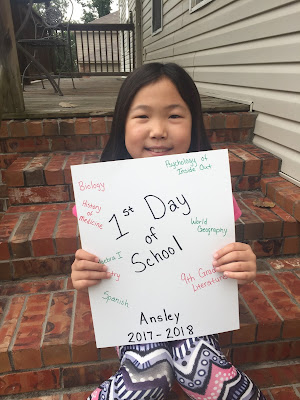 Psychology of
Inside Out
Biology
History of
Medicine
1st Day
of
School
World
Geography
9th Grade
Literature
Spanish
Ansley
2017-2018